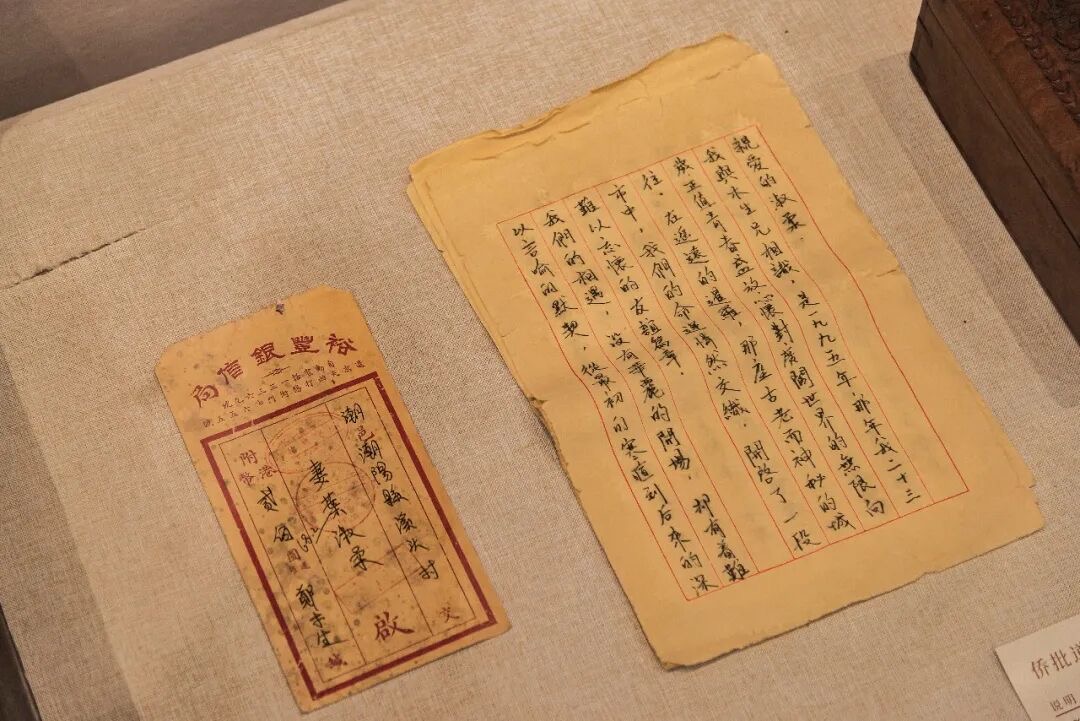 豐銀信局
潮邑潮陽縣 村 交
妻葉淑柔 啟
附港幣 貳佰 鄭木生 緘
親愛的淑柔，
我與木生兄相識，是一九九五年，那年我二十三
歲正值青春盛放，心懷對廣闊世界的無限向
往。在遥遠的暹羅，那座古老而神妙的城
市中，我們的命運悄然交織，開啓了一段
難以忘懷的友誼篇章。
我們的相遇，没有華麗的開場，却有着難
以言喻的默契，從最初的寒暄到后來的深
侨批
说明